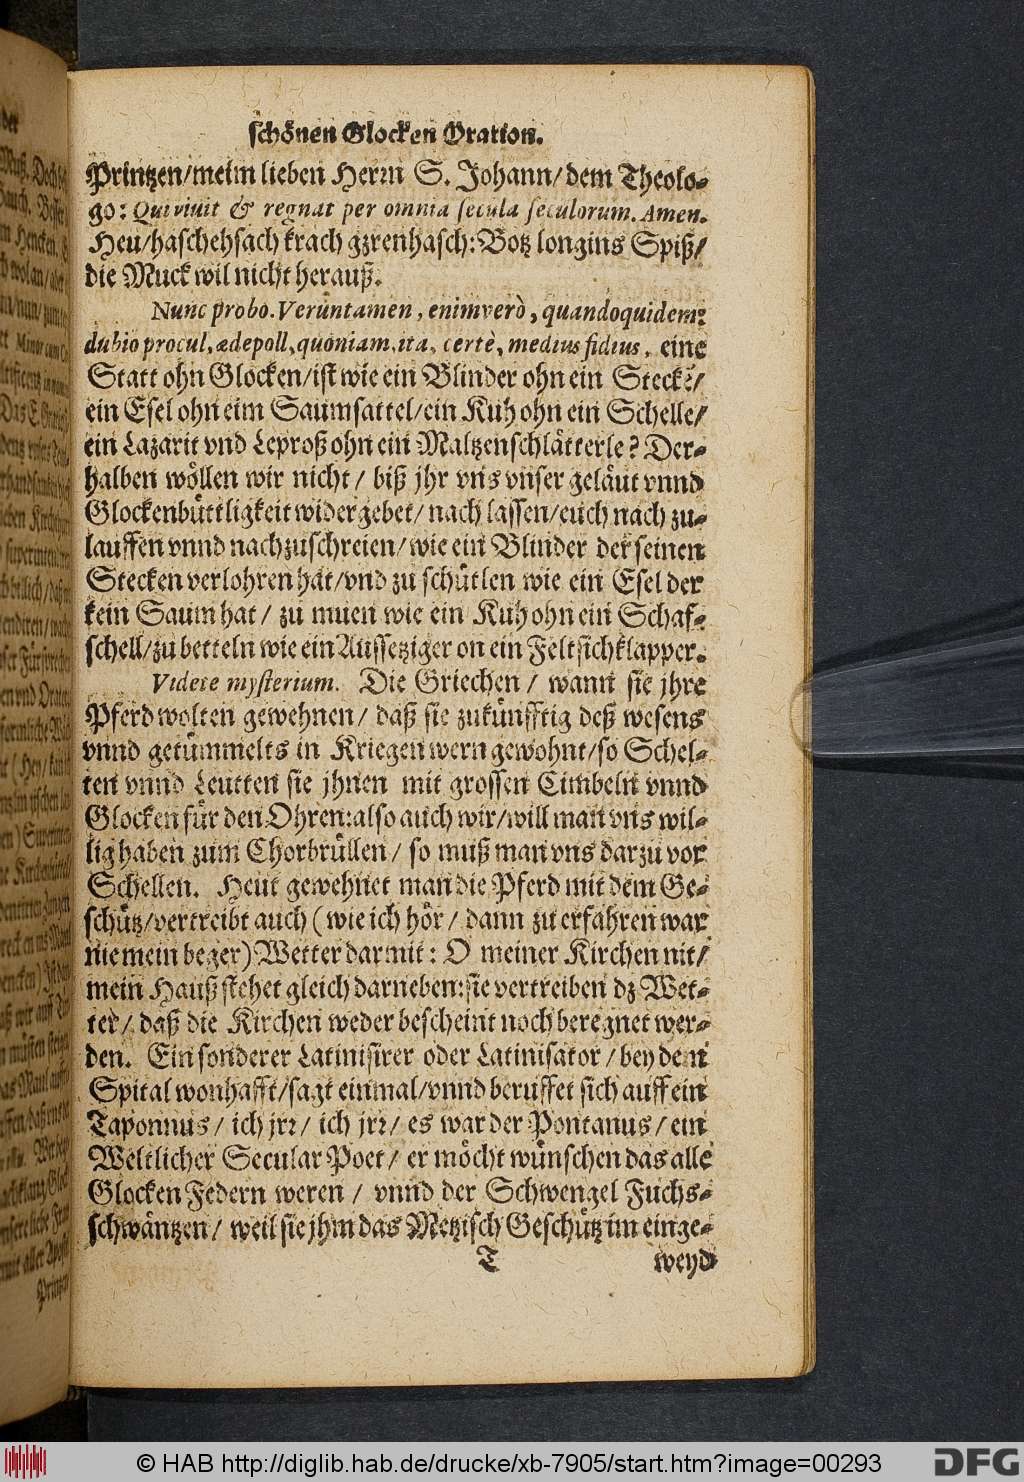 schönen Glocken Oration.
Printzen/meim lieben Herrn S. Johann/dem Theolo-
go: Qui viuit & regnat per omnia secula seculorum. Amen.
Heu/haschehsach krach gzrenhasch: Botz longins Spiß/
die Muck wil nicht herauß.
Nunc probo. Veruntamen, enimverò, quandoquidem:
dubio procul, ædepoll, quoniam, ita, certè, medius fidius, eine
Statt ohn Glocken/ist wie ein Blinder ohn ein Steckẽ/
ein Esel ohn eim Saumsattel/ein Kuh ohn ein Schelle/
ein Lazarit vnd Leproß ohn ein Maltzenschlätterle? Der-
halben wöllen wir nicht/ biß jhr vns vnser geläut vnnd
Glockenbüttligkeit wider gebet/ nach lassen/euch nach zu-
lauffen vnnd nachzuschreien/wie ein Blinder der seinen
Stecken verlohren hat/vnd zu schütlen wie ein Esel der
kein Saum hat/ zu muen wie ein Kuh ohn ein Schaf-
schell/zu betteln wie ein Aussetziger on ein Feltsichklapper.
Videte mysterium. Die Griechen/ wann sie jhre
Pferd wolten gewehnen/ daß sie zukünfftig deß wesens
vnnd getümmelts in Kriegen wern gewohnt/so Schel-
ten vnnd Leutten sie jhnen mit grossen Cimbeln vnnd
Glocken für den Ohren: also auch wir/will man vns wil-
lig haben zum Chorbrüllen/ so muß man vns darzu vor
Schellen. Heut gewehnet man die Pferd mit dem Ge-
schütz/vertreibt auch (wie ich hör/ dann zu erfahren war
nie mein beger) Wetter darmit: O meiner Kirchen nit/
mein Hauß stehet gleich darneben: sie vertreiben dz Wet-
ter/ daß die Kirchen weder bescheint noch beregnet wer-
den. Ein sonderer Latinisirer oder Latinisator/ bey dem
Spital wonhafft/sagt einmal/vnnd beruffet sich auff ein
Taponnus/ ich jrr/ ich jrr/ es war der Pontanus/ ein
Weltlicher Secular Poet/ er möcht wünschen das alle
Glocken Federn weren/ vnnd der Schwengel Fuchs-
schwäntzen/ weil sie jhm das Metzisch Geschütz im einge-
T weyd
© HAB http://diglib.hab.de/drucke/xb-7905/start.htm?image=00293
DFG